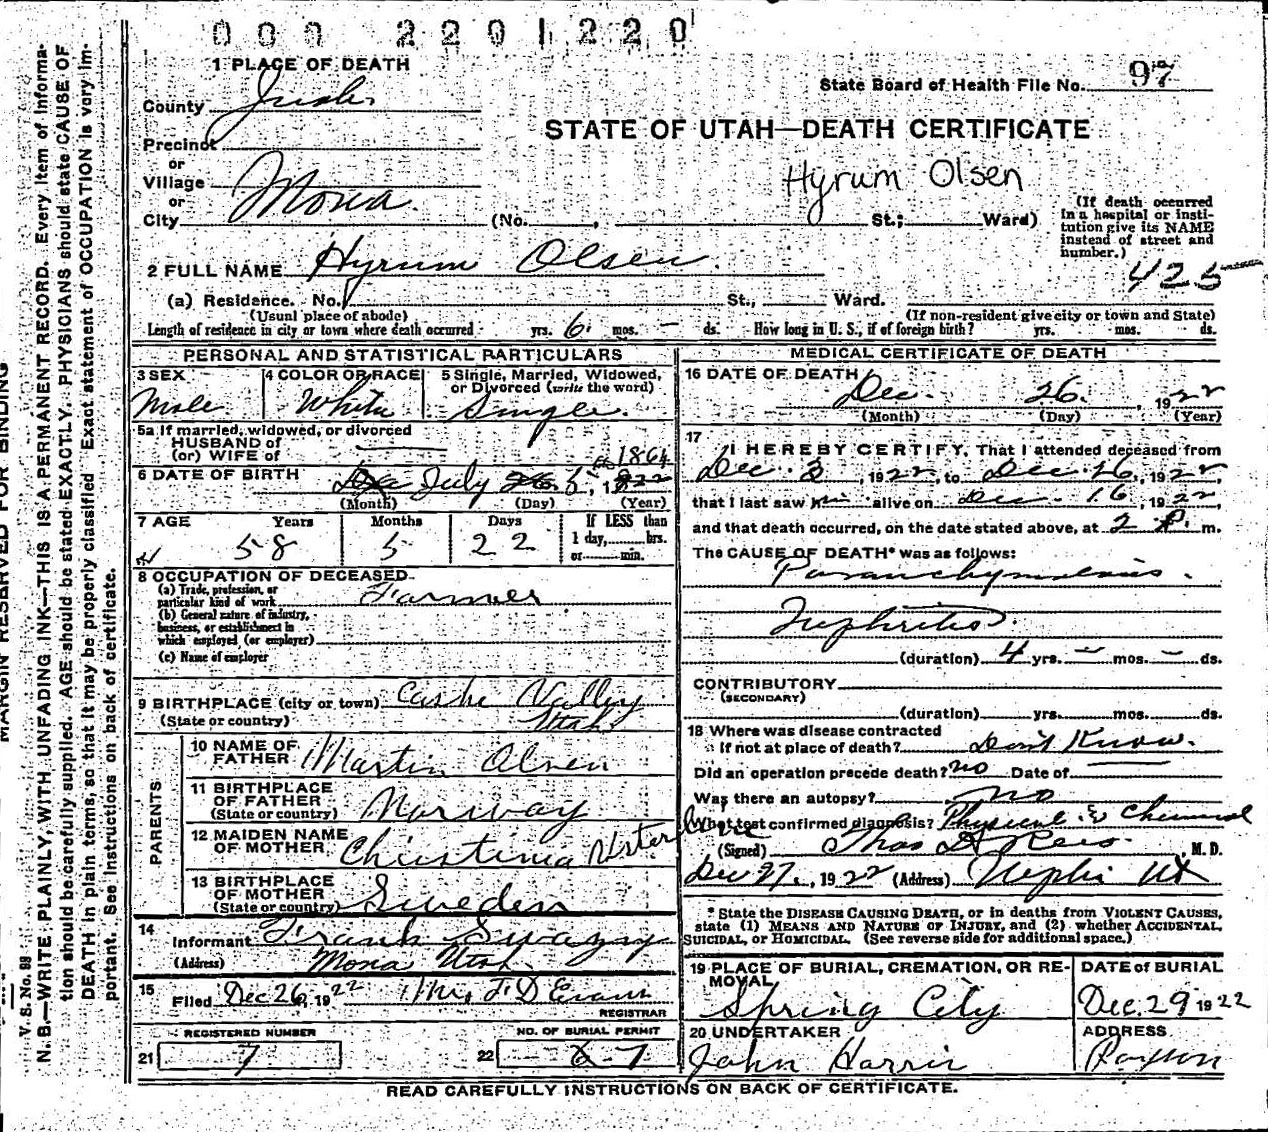 000 2201220
1 PLACE OF DEATH
State Board of Health File No. 97
County Juab
STATE OF UTAH—DEATH CERTIFICATE
Precinct
or
Village
or
City Mona
Hyrum Olsen
(No. , St.; Ward)
(If death occurred in a hospital or insti-
tution give its NAME
instead of street and
number.)
2 FULL NAME Hyrum Olsen.
425
(a) Residence. No. St., Ward.
(Usual place of abode)
(If non-resident give city or town and State)
Length of residence in city or town where death occurred yrs. 6 mos. – ds. How long in U. S., if of foreign birth? yrs. mos. ds.
PERSONAL AND STATISTICAL PARTICULARS
3 SEX
Male
4 COLOR OR RACE
White
5 Single, Married, Widowed,
or Divorced (write the word)
Single.
5a If married, widowed, or divorced
HUSBAND of
(or) WIFE of
6 DATE OF BIRTH July 1864
(Month) (Day) (Year)
7 AGE Years Months Days
58 5 22
If LESS than
1 day, hrs.
or min.
8 OCCUPATION OF DECEASED
(a) Trade, profession, or
particular kind of work Farmer
(b) General nature of industry,
business, or establishment in
which employed (or employer)
(c) Name of employer
9 BIRTHPLACE (city or town) Cashe Valley
(State or country) Utah
PARENTS
10 NAME OF
FATHER Martin Olsen
11 BIRTHPLACE
OF FATHER
(State or country) Norway
12 MAIDEN NAME
OF MOTHER Christina
13 BIRTHPLACE
OF MOTHER
(State or country) Sweden
14
Informant Frank Swazey
(Address) Mona Utah
15
Filed Dec 26, 1922 Mrs F D Evans
REGISTRAR
REGISTERED NUMBER
21 7
NO. OF BURIAL PERMIT
22 27
MEDICAL CERTIFICATE OF DEATH
16 DATE OF DEATH
Dec. 26. , 1922
(Month) (Day) (Year)
17
I HEREBY CERTIFY, That I attended deceased from
Dec. 3, 1922, to Dec. 26, 1922,
that I last saw him alive on Dec. 16, 1922,
and that death occurred, on the date stated above, at 2 P. m.
The CAUSE OF DEATH* was as follows:
Nephritis.
(duration) 4 yrs. – mos. – ds.
CONTRIBUTORY
(SECONDARY)
(duration) yrs. mos. ds.
18 Where was disease contracted
if not at place of death? Don't Know.
Did an operation precede death? no Date of
Was there an autopsy? no
What test confirmed diagnosis? Physical & Chemical
(Signed) Thos D Rees. , M. D.
Dec 27, 1922 (Address) Nephi Ut
* State the DISEASE CAUSING DEATH, or in deaths from VIOLENT CAUSES,
state (1) MEANS AND NATURE OF INJURY, and (2) whether ACCIDENTAL,
SUICIDAL, or HOMICIDAL. (See reverse side for additional space.)
19 PLACE OF BURIAL, CREMATION, OR RE-
MOVAL
Spring City
DATE of BURIAL
Dec. 29 1922
20 UNDERTAKER
John Harris
ADDRESS
Payson
READ CAREFULLY INSTRUCTIONS ON BACK OF CERTIFICATE.
MARGIN RESERVED FOR BINDING
V. S. No. 98
N. B.—WRITE PLAINLY, WITH UNFADING INK—THIS IS A PERMANENT RECORD. Every item of informa-
tion should be carefully supplied. AGE should be stated EXACTLY. PHYSICIANS should state CAUSE OF
DEATH in plain terms, so that it may be properly classified. Exact statement of OCCUPATION is very im-
portant. See Instructions on back of certificate.